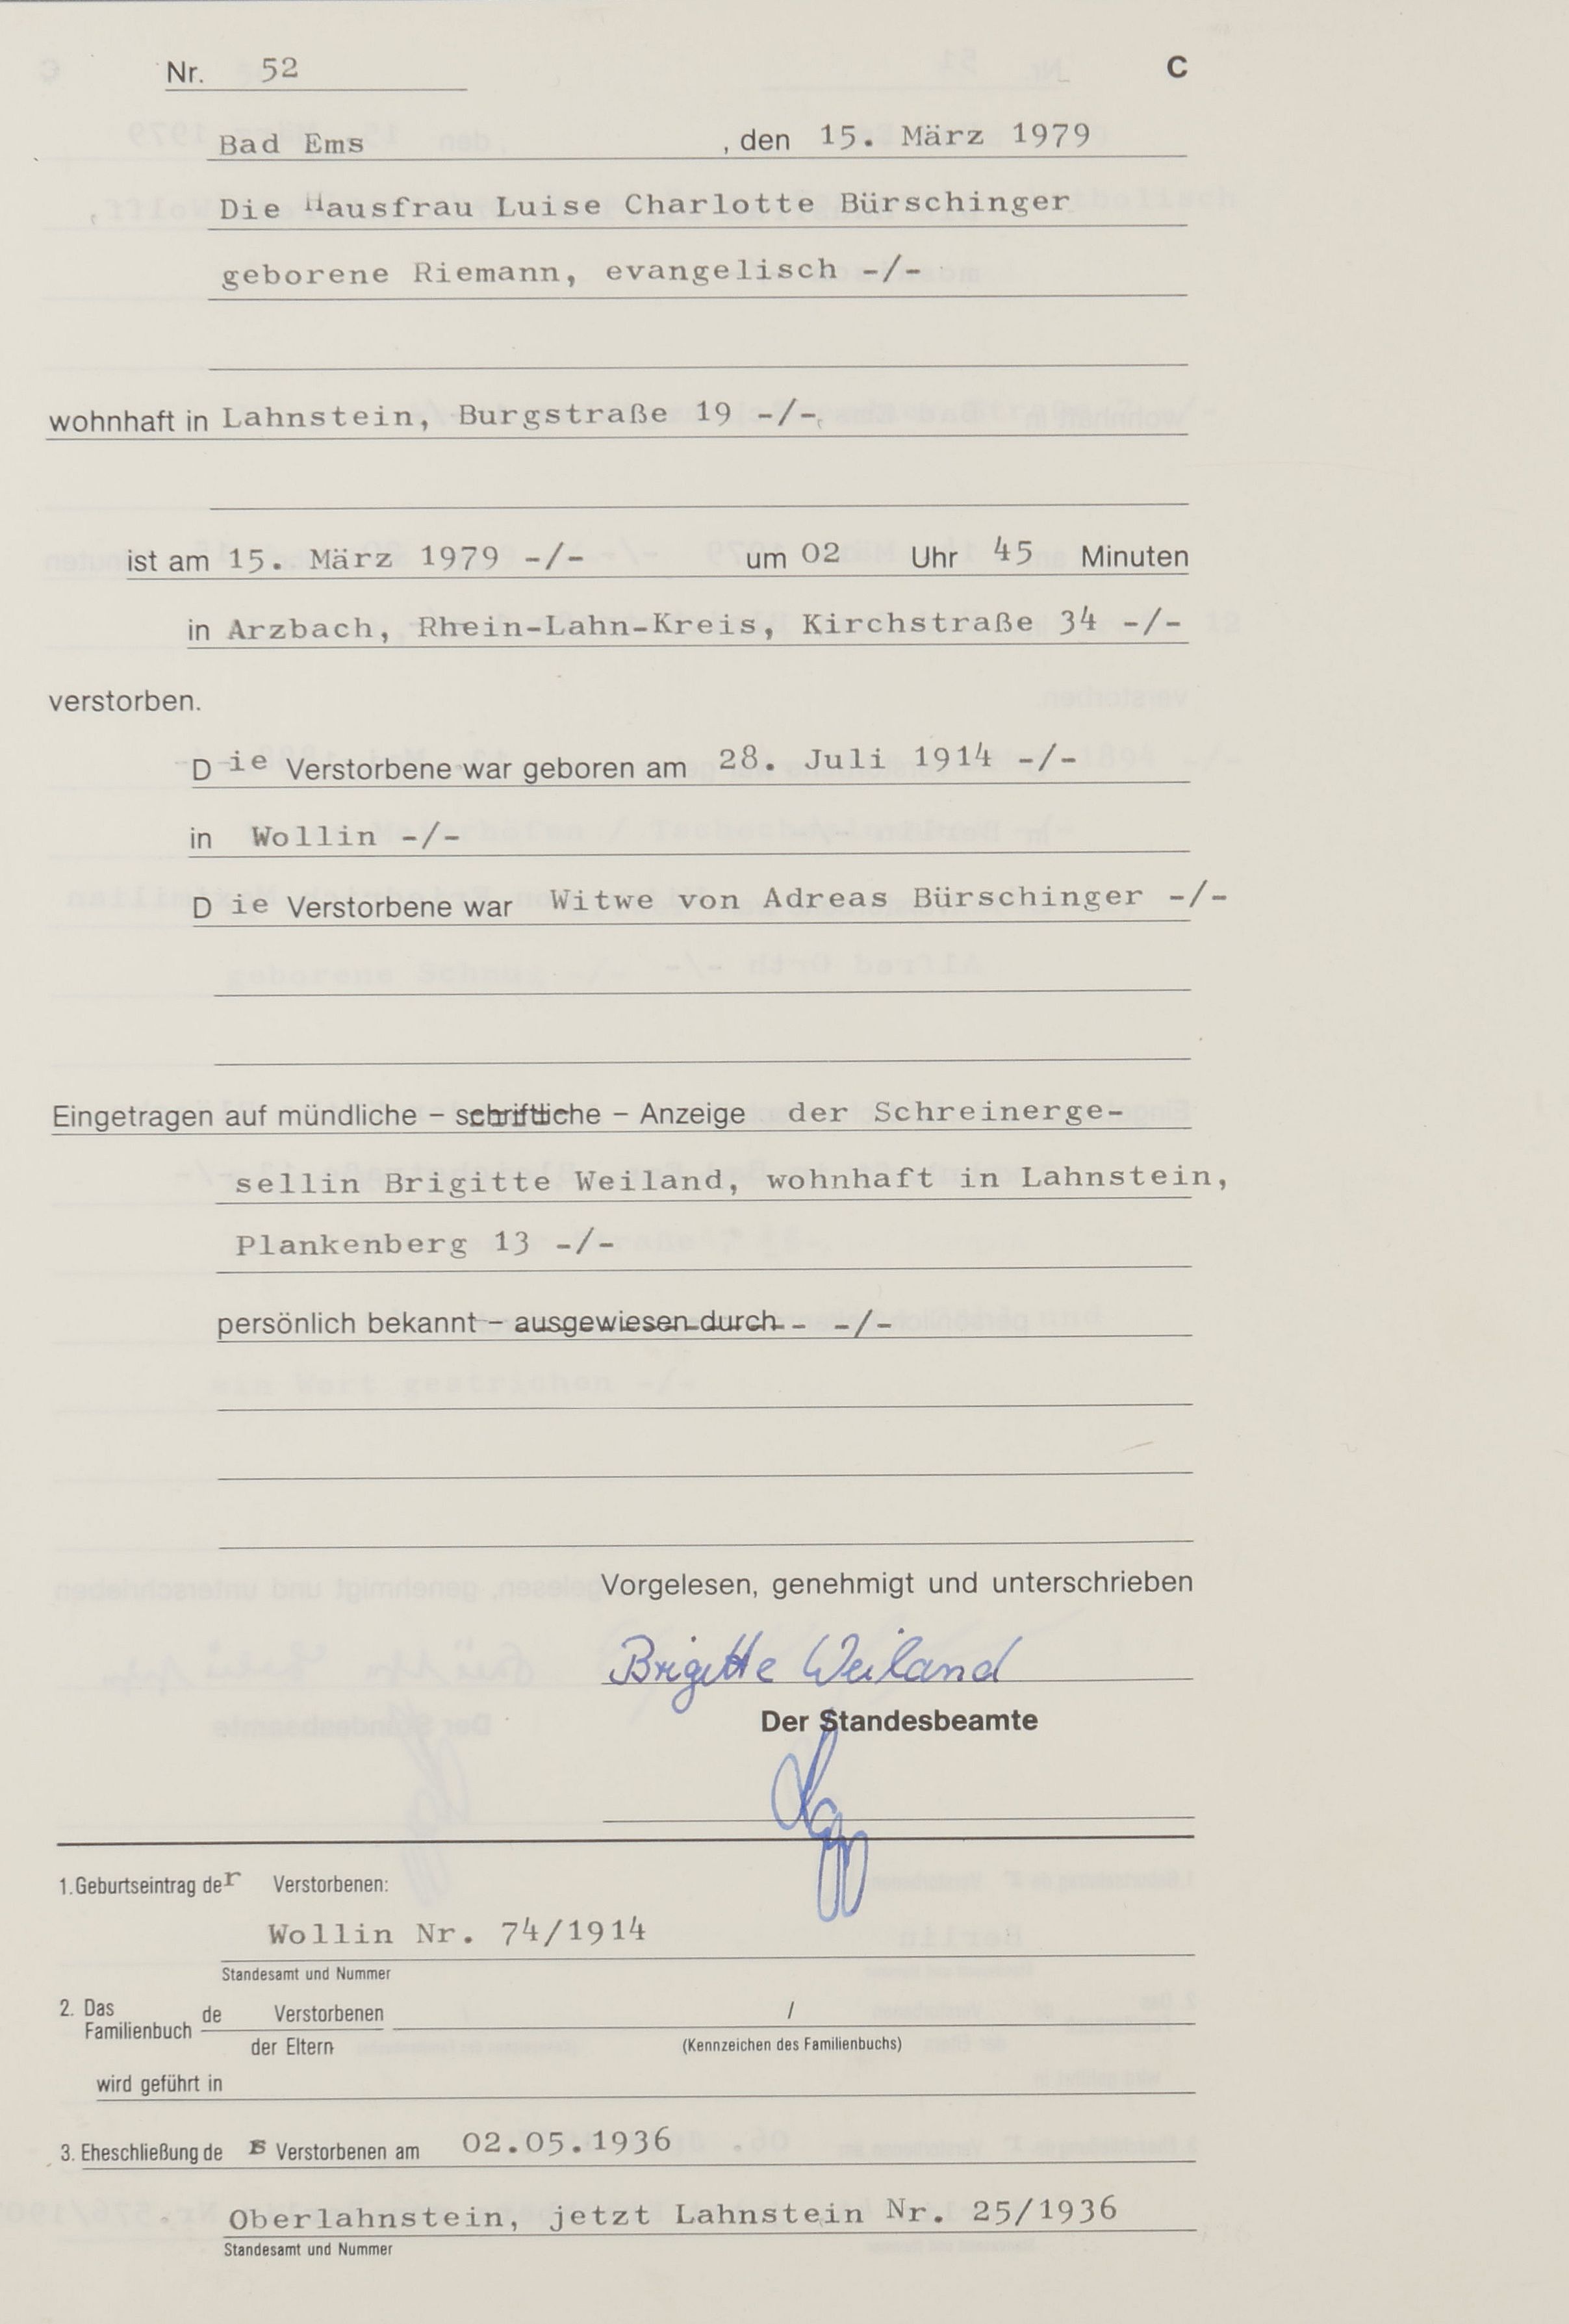 Nr. 52 C
Bad Ems , den 15. März 1979
Die Hausfrau Luise Charlotte Bürschinger
geborene Riemann, evangelisch -/-
wohnhaft in Lahnstein, Burgstraße 19 -/-
ist am 15. März 1979 -/- um 02 Uhr 45 Minuten
in Arzbach, Rhein-Lahn-Kreis, Kirchstraße 34 -/-
verstorben.
Die Verstorbene war geboren am 28. Juli 1914 -/-
in Wollin -/-
Die Verstorbene war Witwe von Adreas Bürschinger -/-
Eingetragen auf mündliche – schriftliche – Anzeige der Schreinerge-
sellin Brigitte Weiland, wohnhaft in Lahnstein,
Plankenberg 13 -/-
persönlich bekannt – ausgewiesen durch - -/-
Vorgelesen, genehmigt und unterschrieben
Brigitte Weiland
Der Standesbeamte
1. Geburtseintrag der Verstorbenen:
Wollin Nr. 74/1914
Standesamt und Nummer
2. Das Familienbuch de Verstorbenen /
der Eltern (Kennzeichen des Familienbuchs)
wird geführt in
3. Eheschließung de Verstorbenen am 02.05.1936
Oberlahnstein, jetzt Lahnstein Nr. 25/1936
Standesamt und Nummer